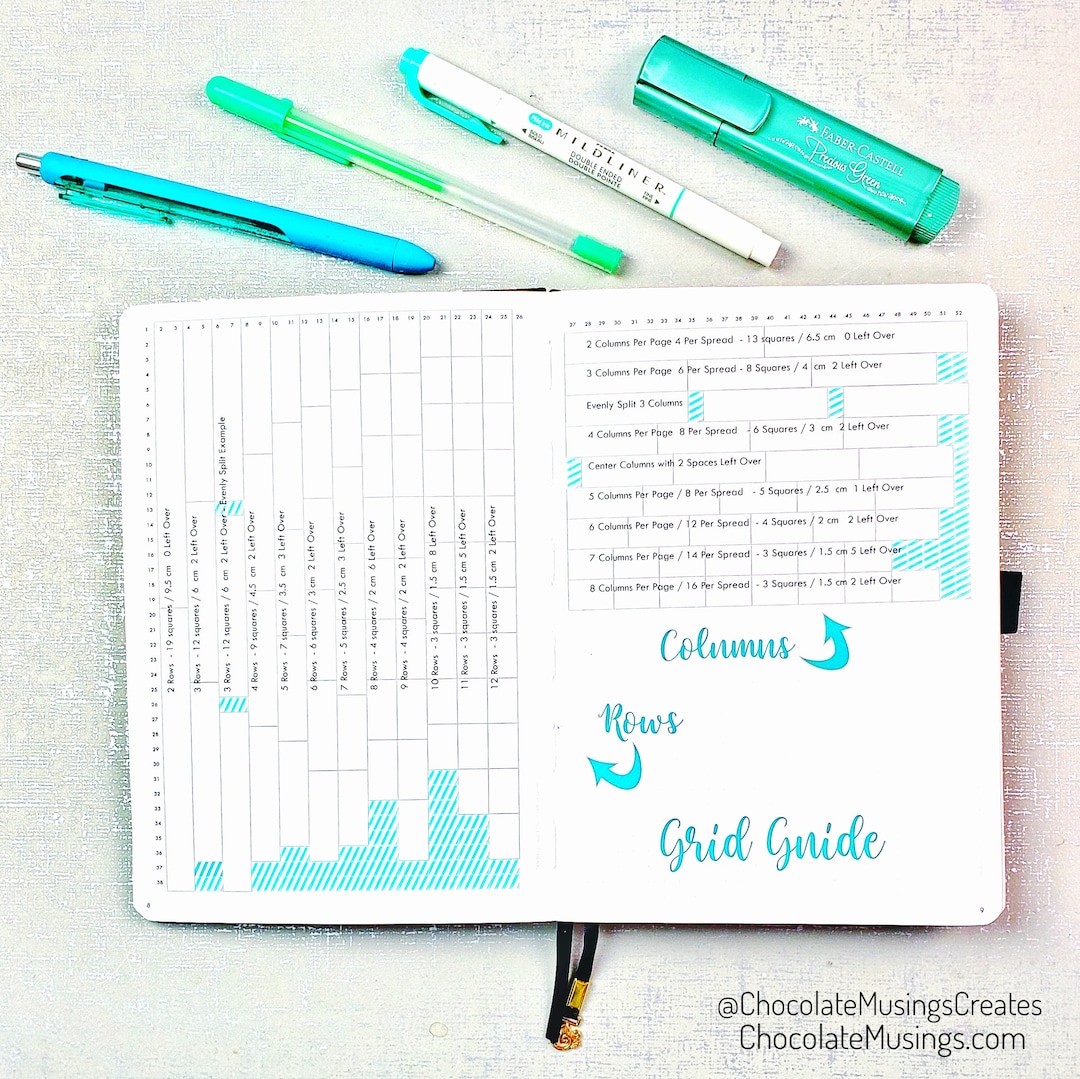 MILD INK
BOLD
BISEAU
MILDLINER™
DOUBLE ENDED
DOUBLE POINTE
FINE
FINE
FABER-CASTELL
Precious Green
1 2 3 4 5 6 7 8 9 10 11 12 13 14 15 16 17 18 19 20 21 22 23 24 25 26
2
3
4
5
6
7
8
9
10
11
12
13
14
15
16
17
18
19
20
21
22
23
24
25
26
27
28
29
30
31
32
33
34
35
36
37
38
2 Rows - 19 squares / 9.5 cm 0 Left Over
3 Rows - 12 squares / 6 cm 2 Left Over
3 Rows - 12 squares / 6 cm 2 Left Over - Evenly Split Example
4 Rows - 9 squares / 4.5 cm 2 Left Over
5 Rows - 7 squares / 3.5 cm 3 Left Over
6 Rows - 6 squares / 3 cm 2 Left Over
7 Rows - 5 squares / 2.5 cm 3 Left Over
8 Rows - 4 squares / 2 cm 6 Left Over
9 Rows - 4 squares / 2 cm 2 Left Over
10 Rows - 3 squares / 1.5 cm 8 Left Over
11 Rows - 3 squares / 1.5 cm 5 Left Over
12 Rows - 3 squares / 1.5 cm 2 Left Over
8
27 28 29 30 31 32 33 34 35 36 37 38 39 40 41 42 43 44 45 46 47 48 49 50 51 52
2 Columns Per Page 4 Per Spread - 13 squares / 6.5 cm 0 Left Over
3 Columns Per Page 6 Per Spread - 8 Squares / 4 cm 2 Left Over
Evenly Split 3 Columns
4 Columns Per Page 8 Per Spread - 6 Squares / 3 cm 2 Left Over
Center Columns with 2 Spaces Left Over
5 Columns Per Page / 8 Per Spread - 5 Squares / 2.5 cm 1 Left Over
6 Columns Per Page / 12 Per Spread - 4 Squares / 2 cm 2 Left Over
7 Columns Per Page / 14 Per Spread - 3 Squares / 1.5 cm 5 Left Over
8 Columns Per Page / 16 Per Spread - 3 Squares / 1.5 cm 2 Left Over
Columns
Rows
Grid Guide
9
@ChocolateMusingsCreates
ChocolateMusings.com